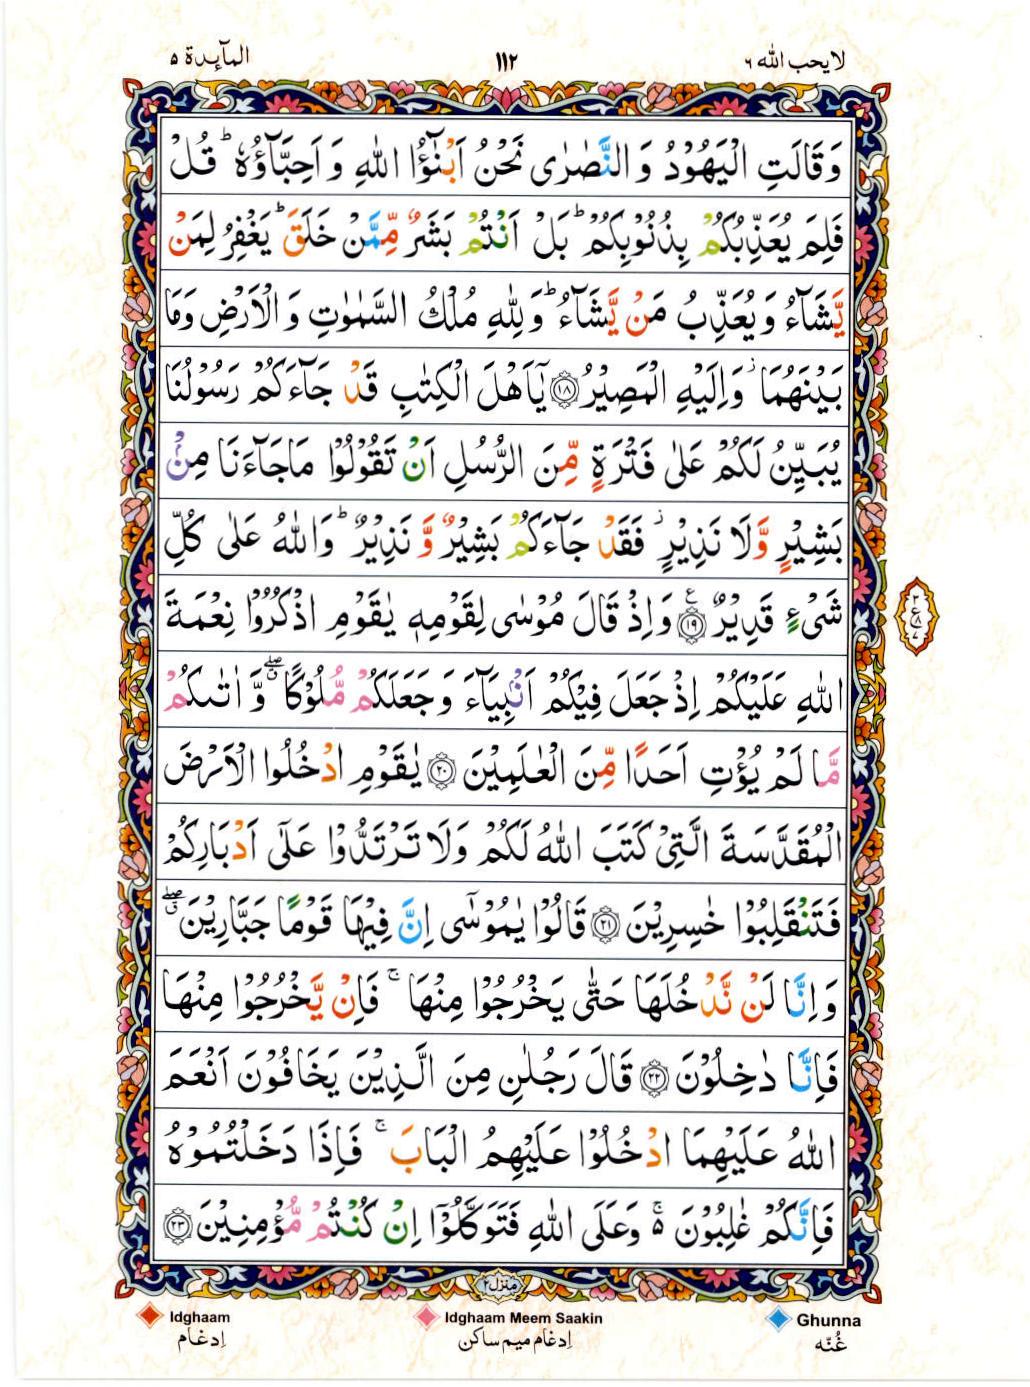 المآىِٕدة ٥
١١٢
لايحب الله ٦
وَقَالَتِ الْيَهُوْدُ وَ النَّصٰرٰى نَحْنُ اَبْنٰٓؤُا اللّٰهِ وَ اَحِبَّآؤُهٗ ؕ قُلْ
فَلِمَ يُعَذِّبُكُمْ بِذُنُوْبِكُمْ ؕ بَلْ اَنْتُمْ بَشَرٌ مِّمَّنْ خَلَقَ ؕ يَغْفِرُ لِمَنْ
يَّشَآءُ وَ يُعَذِّبُ مَنْ يَّشَآءُ ؕ وَلِلّٰهِ مُلْكُ السَّمٰوٰتِ وَ الْاَرْضِ وَمَا
بَيْنَهُمَا ؗ وَاِلَيْهِ الْمَصِيْرُ ۝۱۸ يٰٓاَهْلَ الْكِتٰبِ قَدْ جَآءَكُمْ رَسُوْلُنَا
يُبَيِّنُ لَكُمْ عَلٰى فَتْرَةٍ مِّنَ الرُّسُلِ اَنْ تَقُوْلُوْا مَاجَآءَنَا مِنْۢ
بَشِيْرٍ وَّلَا نَذِيْرٍ ؗ فَقَدْ جَآءَكُمْ بَشِيْرٌ وَّ نَذِيْرٌ ؕ وَاللّٰهُ عَلٰى كُلِّ
شَیْءٍ قَدِيْرٌ ۝۱۹ ع وَاِذْ قَالَ مُوْسٰى لِقَوْمِهٖ يٰقَوْمِ اذْكُرُوْا نِعْمَةَ
اللّٰهِ عَلَيْكُمْ اِذْ جَعَلَ فِيْكُمْ اَنْۢبِيَآءَ وَ جَعَلَكُمْ مُّلُوْكًا ۗۖ وَّ اٰتٰىكُمْ
مَّا لَمْ يُؤْتِ اَحَدًا مِّنَ الْعٰلَمِيْنَ ۝۲۰ يٰقَوْمِ ادْخُلُوا الْاَرْضَ
الْمُقَدَّسَةَ الَّتِیْ كَتَبَ اللّٰهُ لَكُمْ وَلَا تَرْتَدُّوْا عَلٰٓى اَدْبَارِكُمْ
فَتَنْقَلِبُوْا خٰسِرِيْنَ ۝۲۱ قَالُوْا يٰمُوْسٰٓى اِنَّ فِيْهَا قَوْمًا جَبَّارِيْنَ ۗۖ
وَ اِنَّا لَنْ نَّدْخُلَهَا حَتّٰى يَخْرُجُوْا مِنْهَا ۚ فَاِنْ يَّخْرُجُوْا مِنْهَا
فَاِنَّا دٰخِلُوْنَ ۝۲۲ قَالَ رَجُلٰنِ مِنَ الَّذِيْنَ يَخَافُوْنَ اَنْعَمَ
اللّٰهُ عَلَيْهِمَا ادْخُلُوْا عَلَيْهِمُ الْبَابَ ۚ فَاِذَا دَخَلْتُمُوْهُ
فَاِنَّكُمْ غٰلِبُوْنَ ۬ۚ وَعَلَى اللّٰهِ فَتَوَكَّلُوْٓا اِنْ كُنْتُمْ مُّؤْمِنِيْنَ ۝۲۳
منزل ٢
Idghaam
اِدغام
Idghaam Meem Saakin
اِدغام ميم ساكن
Ghunna
غُنّه